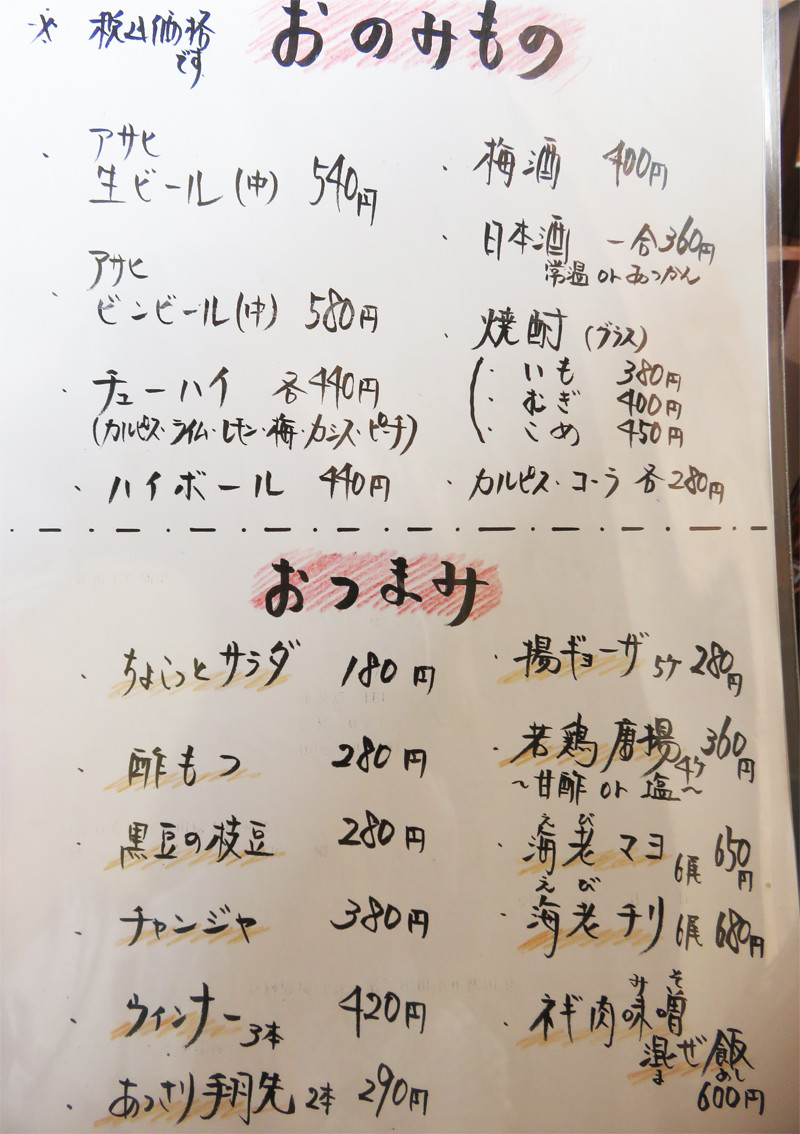 ※ 税込価格
です
おのみもの
・アサヒ
生ビール(中) 540円
・アサヒ
ビンビール(中) 580円
・チューハイ 各440円
(カルピス・ライム・レモン・梅・カシス・ピーチ)
・ハイボール 440円
・梅酒 400円
・日本酒 一合360円
常温 or あつかん
・焼酎 (グラス)
・いも 380円
・むぎ 400円
・こめ 450円
・カルピス・コーラ 各280円
おつまみ
・ちょこっとサラダ 180円
・酢もつ 280円
・黒豆の枝豆 280円
・チャンジャ 380円
・ウィンナー3本 420円
・あっさり手羽先 2本 290円
・揚ギョーザ 5ケ 280円
・若鶏唐揚 4ケ 360円
〜甘酢 or 塩〜
えび
・海老マヨ 6尾 650円
えび
・海老チリ 6尾 680円
みそ
・ネギ肉味噌
混ぜ飯
ま めし
600円